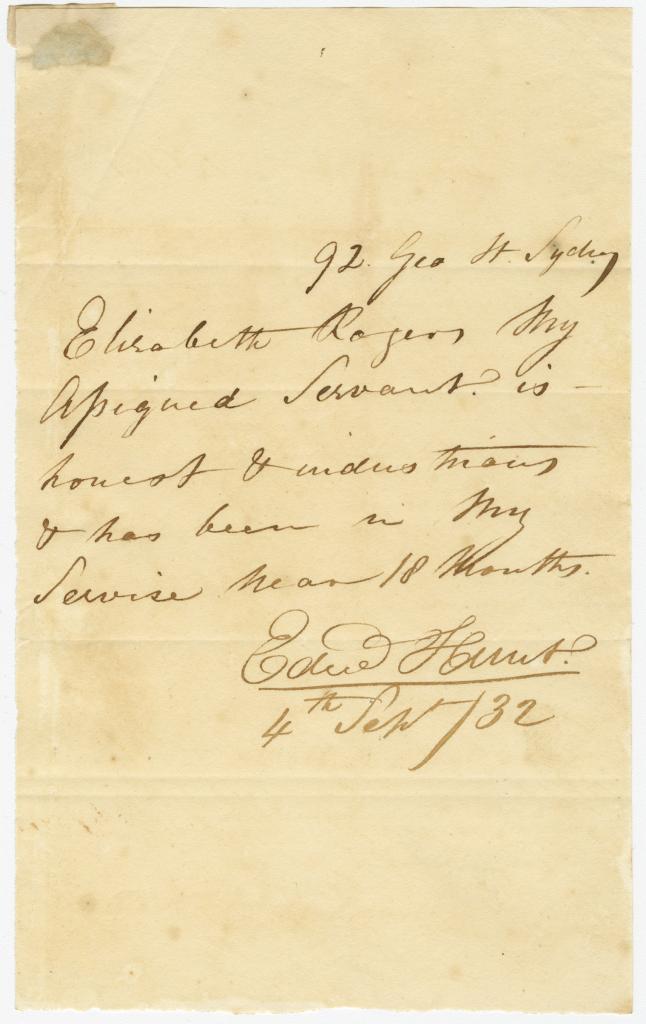 92. Geo St. Sydney
Elizabeth Rogers My
Assigned Servant. is -
honest & industrious
& has been in My
Servise near 18 Months.
Edwd Hunt.
4th Sept /32